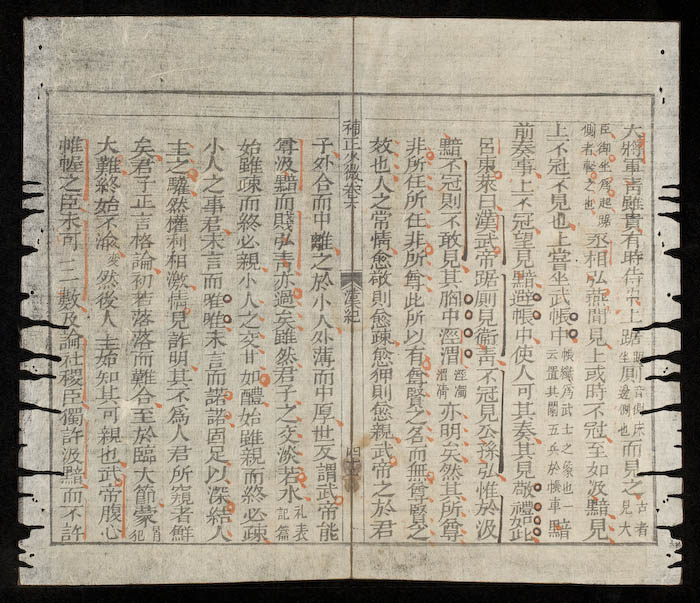 大將軍青雖貴有時侍中上踞踞音據床厠邊側也而見之古者見大
臣御坐爲起踞側者輕之也丞相弘燕間見上或時不冠至如汲黯見
上不冠不見也上嘗坐武帳中帳織爲武士之象也一云置其闌五兵於帳車黯
前奏事上不冠望見黯避帳中使人可其奏其見敬禮如此
呂東萊曰漢武帝踞厠見衛青不冠見公孫弘惟於汲
黯不冠則不敢見其胸中涇渭涇濁渭淸亦明矣然其所尊
非所任所任非所尊此所以有尊賢之名而無尊賢之
效也人之常情愈敬則愈疎愈狎則愈親武帝之於君
補正史畧卷六 漢紀 四
子外合而中離之於小人外薄而中厚世反謂武帝能
尊汲黯而賤弘青亦過矣雖然君子之交淡若水礼表記篇
始雖疎而終必親小人之交甘如醴始雖親而終必疎
小人之事君未言而唯唯未言而諾諾固足以深結人
主之驩然權利相激情見詐明其不爲人君所窺者鮮
矣君子正言格論初若落落而難合至於臨大節蒙冒犯
大難終始不渝変然後人主始知其可親也武帝腹心
帷幄之臣未可一二數及論社稷臣獨許汲黯而不許